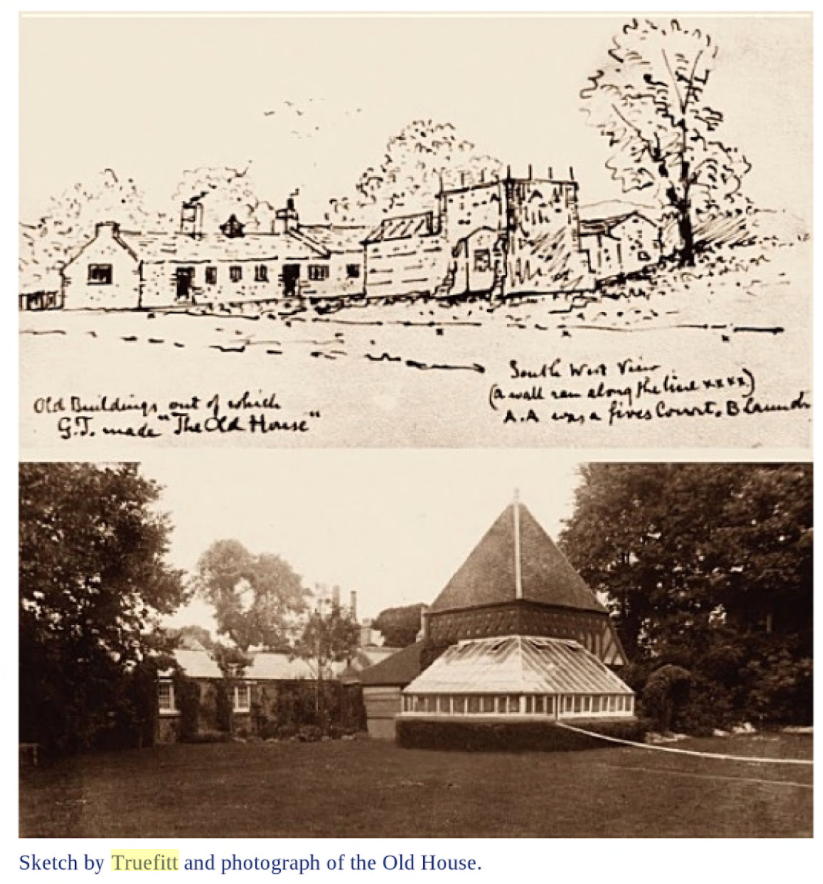 Old Buildings out of which
G.T. made "The Old House"
South West View
(a wall ran along the line xxxx)
A.A was a fives Court. B Laundry
Sketch by Truefitt and photograph of the Old House.